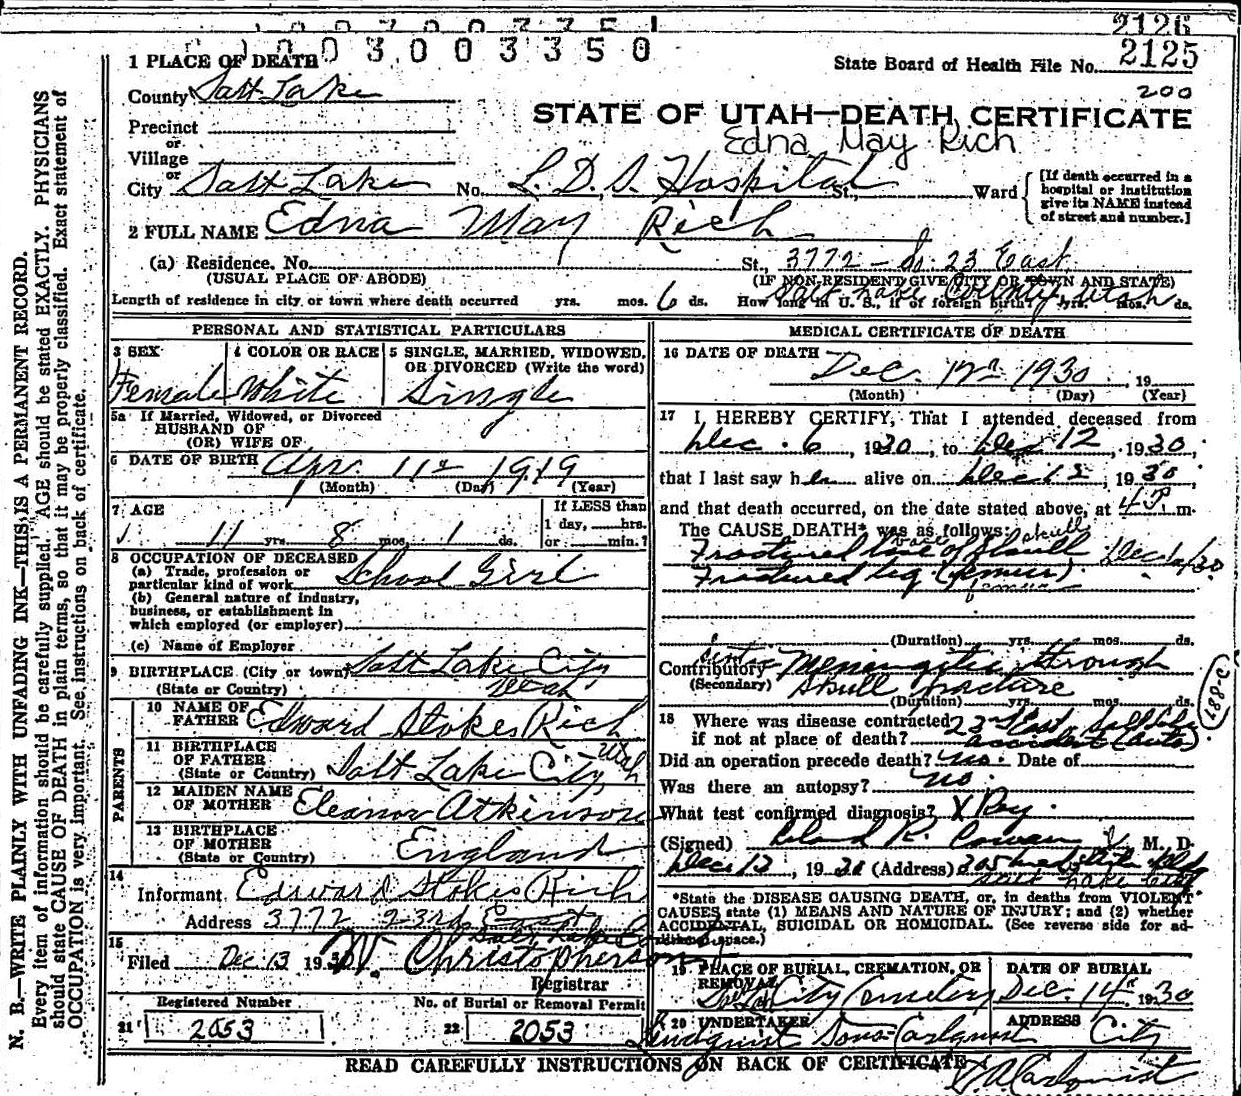 2126
1003003350
2125
1 PLACE OF DEATH
State Board of Health File No.
County Salt Lake
200
STATE OF UTAH—DEATH CERTIFICATE
Precinct
Edna May Rich
or
Village
or
City Salt Lake No. L. D. S. Hospital St., Ward
[If death occurred in a hospital or institution give its NAME instead of street and number.]
2 FULL NAME Edna May Rich
(a) Residence. No. St., 3772 - So. 23 East
(USUAL PLACE OF ABODE)
(IF NON-RESIDENT GIVE CITY OR TOWN AND STATE)
Salt Lake County Utah
Length of residence in city or town where death occurred yrs. mos. 6 ds. How long in U. S., if of foreign birth? yrs. mos. ds.
PERSONAL AND STATISTICAL PARTICULARS
3 SEX 4 COLOR OR RACE 5 SINGLE, MARRIED, WIDOWED, OR DIVORCED (Write the word)
Female White Single
5a If Married, Widowed, or Divorced
HUSBAND OF
(OR) WIFE OF
6 DATE OF BIRTH Apr. 11 1919
(Month) (Day) (Year)
7 AGE If LESS than
1 day, hrs.
11 yrs. 8 mos. 1 ds. or min.?
8 OCCUPATION OF DECEASED
(a) Trade, profession or
particular kind of work School Girl
(b) General nature of industry,
business, or establishment in
which employed (or employer)
(c) Name of Employer
9 BIRTHPLACE (City or town) Salt Lake City
(State or Country) Utah
PARENTS
10 NAME OF FATHER Edward Stokes Rich
11 BIRTHPLACE OF FATHER
(State or Country) Salt Lake City Utah
12 MAIDEN NAME OF MOTHER Eleanor Atkinson
13 BIRTHPLACE OF MOTHER
(State or Country) England
14
Informant Edward Stokes Rich
Address 3772 23rd East
Salt Lake
15
Filed Dec 13 1930 Christopherson
Registrar
Registered Number No. of Burial or Removal Permit
21 2053 22 2053
MEDICAL CERTIFICATE OF DEATH
16 DATE OF DEATH Dec. 12 1930, 19
(Month) (Day) (Year)
17 I HEREBY CERTIFY, That I attended deceased from
Dec. 6, 1930, to Dec 12, 1930,
that I last saw her alive on Dec 12, 1930,
and that death occurred, on the date stated above, at 4 P m.
The CAUSE DEATH* was as follows:
Fractured base of Skull skull
Fractured leg (femur) femur
(Duration) yrs. mos. ds.
Contributory Meningitis through
(Secondary) Skull fracture
(Duration) yrs. mos. ds.
18 Where was disease contracted 23 East Salt Lake
if not at place of death? accident (auto)
Did an operation precede death? no. Date of
Was there an autopsy? no.
What test confirmed diagnosis? X Ray.
(Signed) Leland R. Cowan M. D.
Dec 13, 1930 (Address) 305
Salt Lake City
*State the DISEASE CAUSING DEATH, or, in deaths from VIOLENT
CAUSES state (1) MEANS AND NATURE OF INJURY; and (2) whether
ACCIDENTAL, SUICIDAL OR HOMICIDAL. (See reverse side for ad-
ditional space.)
19 PLACE OF BURIAL, CREMATION, OR REMOVAL DATE OF BURIAL
City Cemetery Dec. 14 1930
20 UNDERTAKER ADDRESS
Lindquist Sons-Carlquist City
READ CAREFULLY INSTRUCTIONS ON BACK OF CERTIFICATE
Carlquist
188-c
N. B.—WRITE PLAINLY WITH UNFADING INK—THIS IS A PERMANENT RECORD.
Every item of information should be carefully supplied. AGE should be stated EXACTLY. PHYSICIANS
should state CAUSE OF DEATH in plain terms, so that it may be properly classified. Exact statement of
OCCUPATION is very important. See instructions on back of certificate.